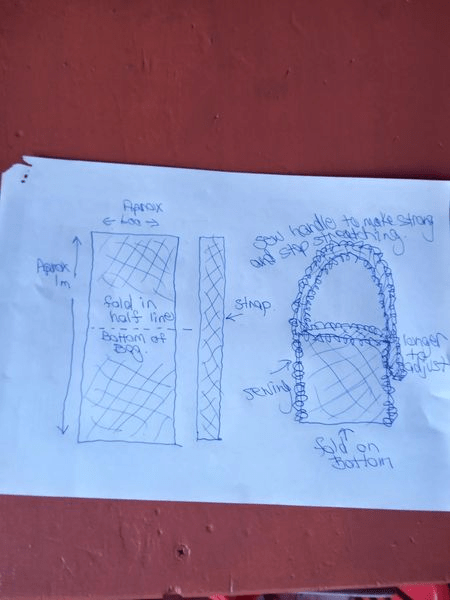 Aprox
600
Aprox
1m
fold in
half line
Bottom of
Bag.
strap.
Sow handle to make strong
and stop streatching.
sewing
longer
to
adjust
fold on
Bottom